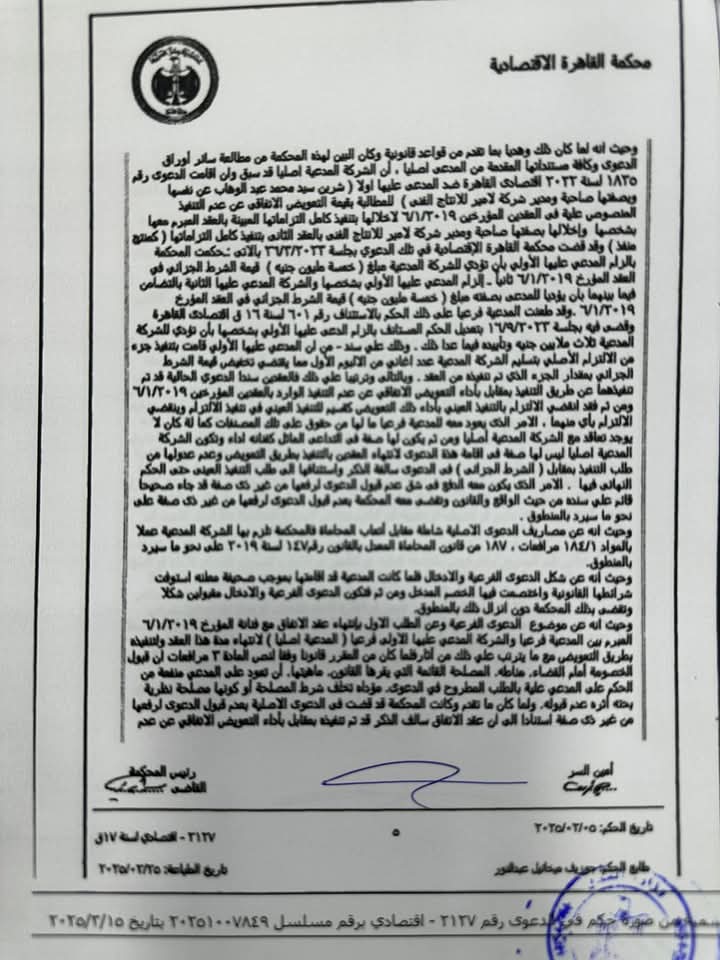 محكمة القاهرة الاقتصادية
وحيث انه لما كان ذلك وهديا بما تقدم من قواعد قانونية وكان البين لهذه المحكمة من مطالعة سائر أوراق
الدعوى وكافة مستنداتها المقدمة من المدعى اصليا ، أن الشركة المدعية اصليا قد سبق وان اقامت الدعوى رقم
١٨٣٥ لسنة ٢٠٢٢ اقتصادى القاهرة ضد المدعى عليها اولا ( شرين سيد محمد عبد الوهاب عن نفسها
وبصفتها صاحبة ومدير شركة لامير للانتاج الفنى ) للمطالبة بقيمة التعويض الاتفاقي عن عدم التنفيذ
المنصوص علية فى العقدين المؤرخين ٦/١/٢٠١٩ لاخلالها بتنفيذ كامل التزاماتها المبينة بالعقد المبرم معها
بشخصها وإخلالها بصفتها صاحبة ومدير شركة لامير للانتاج الغنى بالعقد الثانى بتنفيذ كامل التزاماتها ( كمنتج
منفذ ) وقد قضت محكمة القاهرة الإقتصادية في تلك الدعوي بجلسة ٢٦/٣/٢٠٢٣ بالاتى :ـحكمت المحكمة
بالزام المدعي عليها الأولي بأن تؤدي للشركة المدعية مبلغ ( خمسة مليون جنيه ) قيمة الشرط الجزائي في
العقد المؤرخ ٦/١/٢٠١٩ ثانياً ـ إلزام المدعي عليها الأولي بشخصها والشركة المدعي عليها الثانية بالتضامن
فيما بينهما بأن يؤديا للمدعى بصفته مبلغ ( خمسة مليون جنيه ) قيمة الشرط الجزائي في العقد المؤرخ
٦/١/٢٠١٩ .وقد طعنت المدعية فرعيا علي ذلك الحكم بالاستئناف رقم ٦٠١ لسنة ١٦ ق اقتصادى القاهرة
وقضى فيه بجلسة ١٦/٩/٢٠٢٣ بتعديل الحكم المستانف بالزام الدعى عليها الأولي بشخصها بأن تؤدي للشركة
المدعية ثلاث ملايين جنيه وتأييده فيما عدا ذلك . وذلك علي سند- من ان المدعي عليها الأولي قامت بتنفيذ جزء
من الالتزام الأصلي بتسليم الشركة المدعية عدد اغاني من الالبوم الأول مما يقتضي تخفيض قيمة الشرط
الجزائي بمقدار الجزء الذي تم تنفيذه من العقد . وبالتالى وترتيبا على ذلك فالعقدين سندا الدعوي الحالية قد تم
تنفيذهما عن طريق التنفيذ بمقابل بأداء التعويض الاتفاقي عن عدم التنفيذ الوارد بالعقدين المؤرخين ٦/١/٢٠١٩
ومن ثم فقد انقضي الالتزام بالتنفيذ العيني بأداء ذلك التعويض كقسيم للتنفيذ العيني في تنفيذ الالتزام وينقضي
الالتزام بأي منهما ، الامر الذي يعود معه للمدعية فرعيا ما لها من حقوق على تلك المصنفات كما لة كان لا
يوجد تعاقد مع الشركة المدعية أصليا ومن ثم يكون لها صفة فى التداعى الماثل كفنانه اداء وتكون الشركة
المدعية اصليا ليس لها صفة فى اقامة هذة الدعوى لانتهاء العقدين بالتنفيذ بطريق التعويض وعدم عدولها من
طلب التنفيذ بمقابل ( الشرط الجزائى ) فى الدعوى سالفة الذكر واستئنافها الى طلب التنفيذ العيني حتى الحكم
النهائى فيها . الامر الذى يكون معه الدفع فى شق عدم قبول الدعوى لرفعها من غير ذى صفة قد جاء صحيحاً
قائم علي سنده من حيث الواقع والقانون وتقضى معه المحكمة بعدم قبول الدعوى لرفعها من غير ذى صفة على
نحو ما سيرد بالمنطوق .
وحيث انه عن مصاريف الدعوى الاصلية شاملة مقابل أتعاب المحاماة فالمحكمة تلزم بها الشركة المدعية عملا
بالمواد ١٨٤/١ مرافعات ، ١٨٧ من قانون المحاماة المعدل بالقانون رقم١٤٧ لسنة ٢٠١٩ على نحو ما سيرد
بالمنطوق.
وحيث انه عن شكل الدعوى الفرعية والادخال فلما كانت المدعية قد اقامتها بموجب صحيفة معلنه استوفت
شرائطها القانونية واختصمت فيها الخصم المدخل ومن ثم فتكون الدعوى الفرعية والادخال مقبولين شكلا
وتقضى بذلك المحكمة دون انزال ذلك بالمنطوق.
وحيث انه عن موضوع الدعوى الفرعية وعن الطلب الاول بإنتهاء عقد الاتفاق مع فنانة المؤرخ ٦/١/٢٠١٩
المبرم بين المدعية فرعيا والشركة المدعي عليها الأولي فرعيا ( المدعية اصليا ) لانتهاء مدة هذا العقد ولتنفيذه
بطريق التعويض مع ما يترتب علي ذلك من أثارفلما كان من المقرر قانونا وفقا لنص المادة ٣ مرافعات ان قبول
الخصومة أمام القضاء. مناطه. المصلحة القائمة التي يقرها القانون. ماهيتها. أن تعود على المدعي منفعة من
الحكم على المدعي علية بالطلب المطروح في الدعوى. مؤداه تخلف شرط المصلحة أو كونها مصلحة نظرية
بحته أثره عدم قبوله. ولما كان ما تقدم وكانت المحكمة قد قضت فى الدعوى الاصلية بعدم قبول الدعوى لرفعها
من غير ذى صفة استنادا الى ان عقد الاتفاق سالف الذكر قد تم تنفيذه بمقابل بأداء التعويض الاتفاقي عن عدم
أمين السر
رئيس المحكمة
القاضى
تاريخ الحكم: ٢٠٢٥/٢/٠٥
٥
٢١٢٧ - اقتصادي لسنة ١٧ق
طابع الحكم: جوزيف ميخائيل عبدالنور
تاريخ الطباعة: ٢٠٢٥/٢/٢٥
من صورة حكم في الدعوى رقم ٢١٢٧ - اقتصادي برقم مسلسل ٢٠٢٥١٠٠٧٨٤٩ بتاريخ ٢٠٢٥/٣/١٥